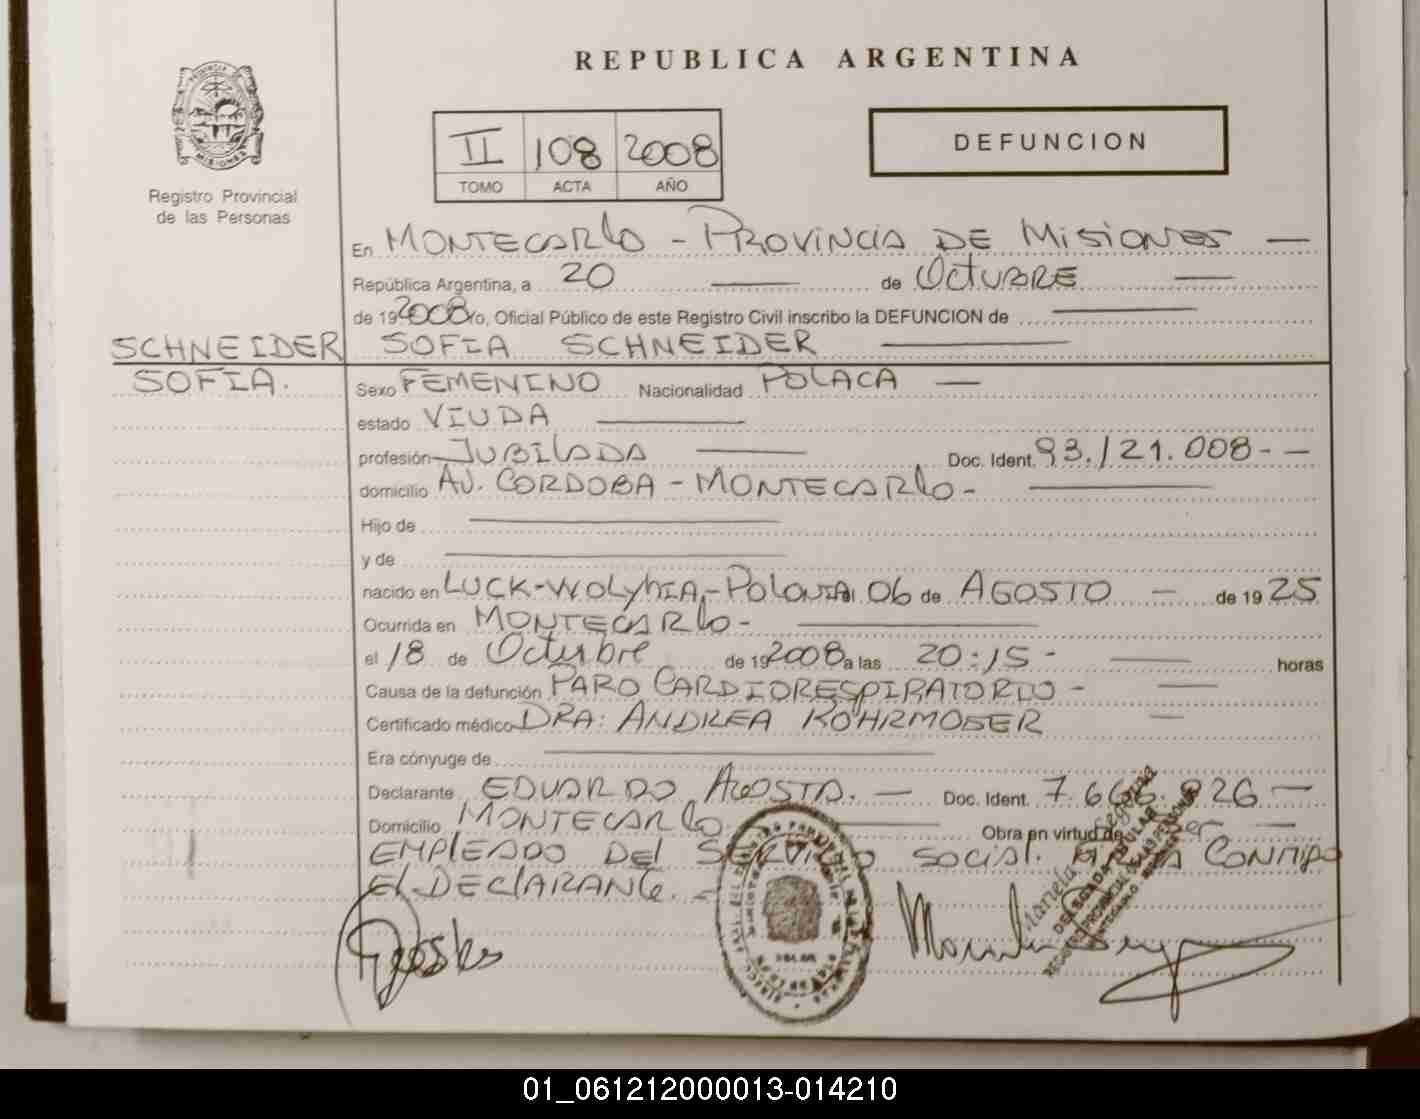 REPUBLICA ARGENTINA
PROVINCIA DE
MISIONES
Registro Provincial
de las Personas
II 108 2008
TOMO ACTA AÑO
DEFUNCION
En MONTECARLO - PROVINCIA DE MISIONES —
República Argentina, a 20 — de OCTUBRE —
de 19 2008 Yo, Oficial Público de este Registro Civil inscribo la DEFUNCION de —
SCHNEIDER SOFIA SCHNEIDER —
SOFIA.
Sexo FEMENINO Nacionalidad POLACA —
estado VIUDA —
profesión JUBILADA — Doc. Ident. 93.121.008 - —
domicilio AV. CORDOBA - MONTECARLO - —
Hijo de —
y de —
nacido en LUCK-WOLYHIA-POLONIA el 06 de AGOSTO — de 19 25
Ocurrida en MONTECARLO - —
el 18 de Octubre de 19 2008 a las 20:15 - — horas
Causa de la defunción PARO CARDIORESPIRATORIO - —
Certificado médico DRA: ANDREA KOHRMOSER —
Era cónyuge de —
Declarante EDUARDO ACOSTA. — Doc. Ident. 7.666.926 —
Domicilio MONTECARLO — Obra en virtud de ser —
EMPLEADO DEL SERVICIO SOCIAL. FIRMA CONMIGO
EL DECLARANTE. -
DELEGADA TITULAR
01_061212000013-014210